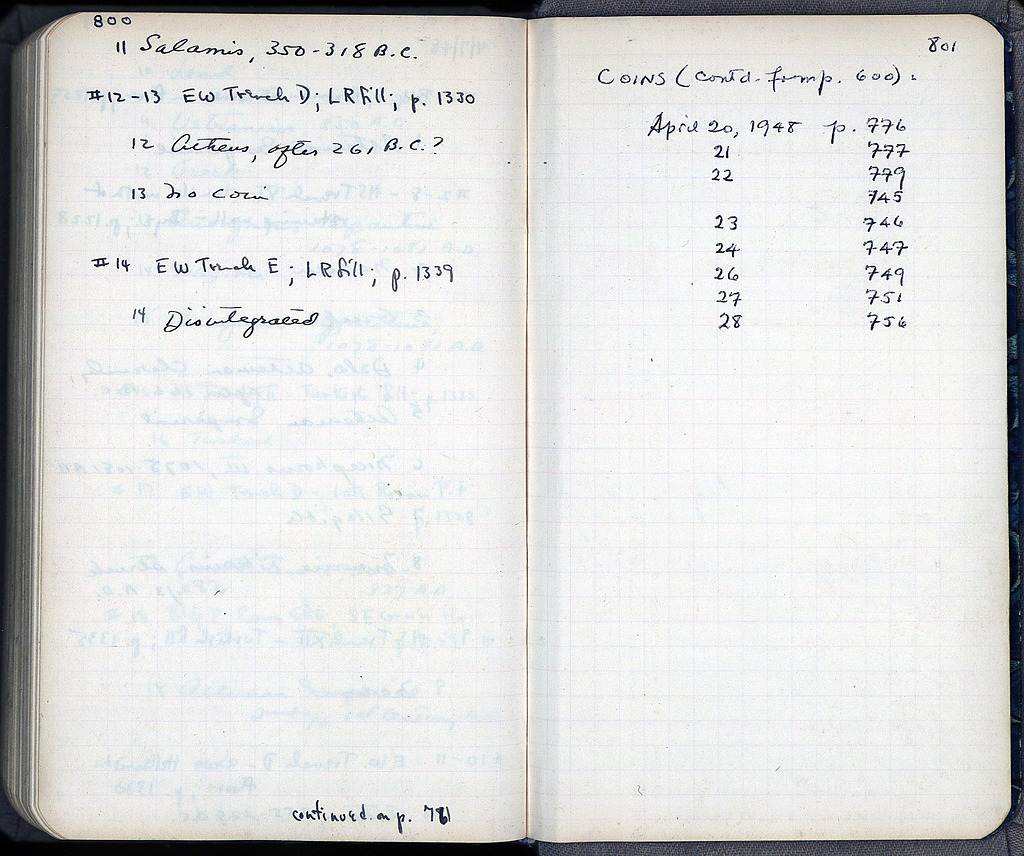 800
11 Salamis, 350-318 B.C.
#12-13 EW Trench D; LR fill; p. 1330
12 Athens, after 261 B.C.?
13 No coin
#14 EW Trench E; LR fill; p. 1339
14 Disintegrated
continued on p.
801
COINS (contd. from p. 600):
April 20, 1948 p. 776
21 777
22 779
745
23 746
24 747
26 749
27 751
28 756